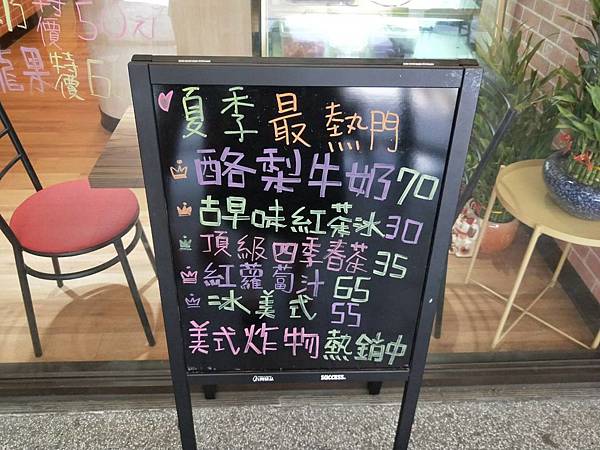 特價50元
龍果特價6
夏季最熱門
酪梨牛奶70
古早味紅茶冰30
頂級四季春茶35
紅蘿蔔汁65
冰美式55
美式炸物熱銷中
SUCCESS.